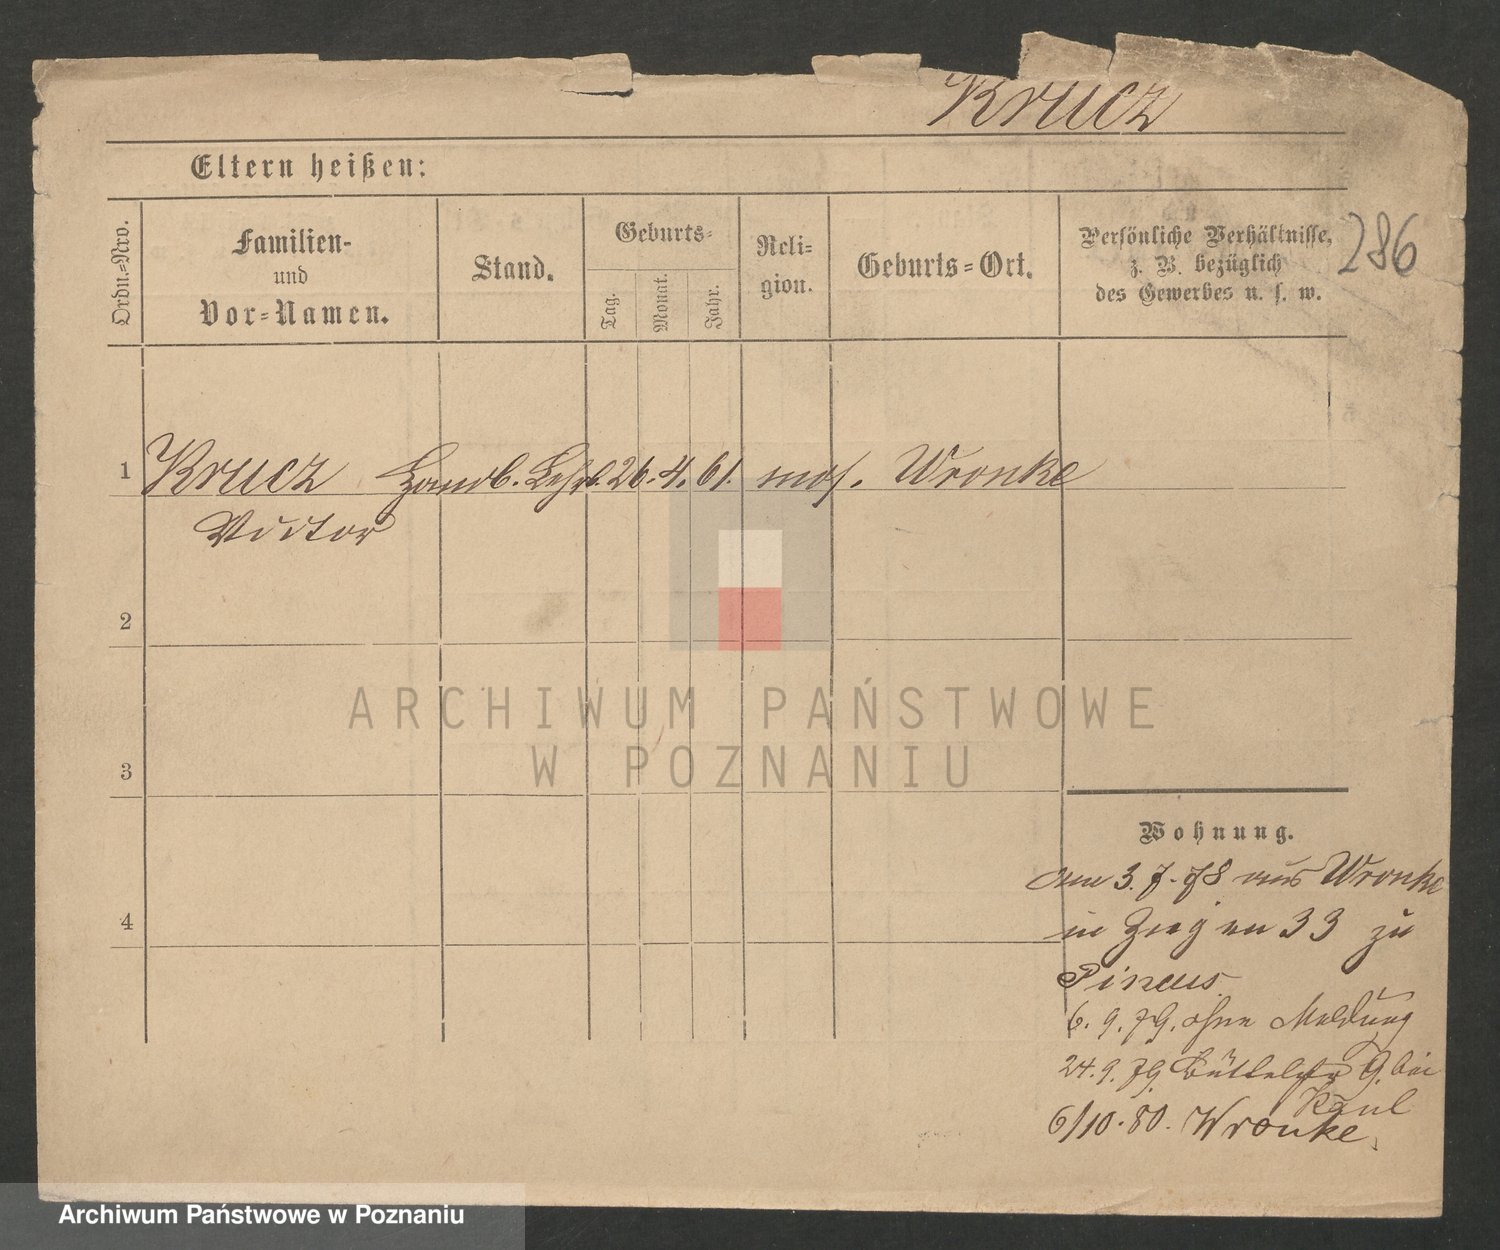 Krucz
Eltern heißen:
Ordn.=Nro.
Familien-
und
Vor=Namen.
Stand.
Geburts=
Tag.
Monat.
Jahr.
Reli=
gion.
Geburts=Ort.
Persönliche Verhältnisse,
z. B. bezüglich
des Gewerbes u. s. w.
286
1 Krucz Handl. Lehrl. 26. 4. 61. mos. Wronke
Victor
2
ARCHIWUM PAŃSTWOWE
W POZNANIU
3
Wohnung.
am 3. 7. 78 aus Wronke
4
in 33 zu
Pincus
6. 9. 79. ohne Meldung
24. 9. 79 Büttelstr 9. bei
Kaul
6/10. 80. Wronke.
Archiwum Państwowe w Poznaniu